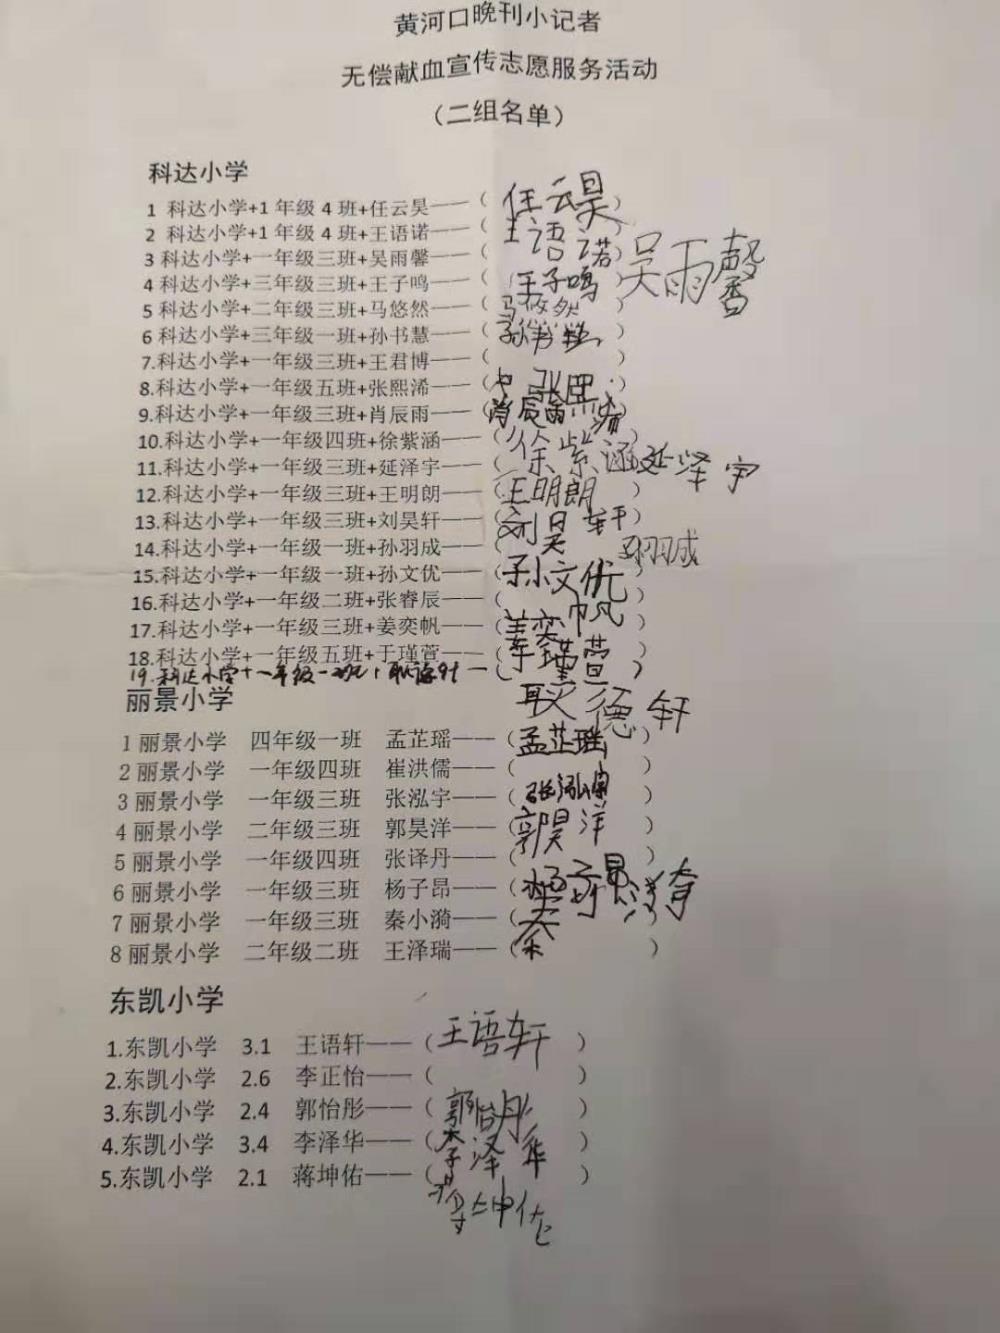 黄河口晚刊小记者
无偿献血宣传志愿服务活动
（二组名单）
科达小学
1 科达小学+1 年级 4 班+任云昊——（任云昊）
2 科达小学+1 年级 4 班+王语诺——（王语诺）
3 科达小学+一年级三班+吴雨馨——（ ）吴雨馨
4 科达小学+三年级三班+王子鸣——（王子鸣）
5 科达小学+二年级三班+马悠然——（马悠然）
6 科达小学+三年级一班+孙书慧——（孙书慧）
7.科达小学+一年级三班+王君博——（ ）
8.科达小学+一年级五班+张熙浠——（张熙浠）
9.科达小学+一年级三班+肖辰雨——（肖辰雨）
10.科达小学+一年级四班+徐紫涵——（徐紫涵
11.科达小学+一年级三班+延泽宇——（ 延泽宇
12.科达小学+一年级三班+王明朗——（王明朗）
13.科达小学+一年级三班+刘昊轩——（刘昊轩）
14.科达小学+一年级一班+孙羽成——（ 孙羽成
15.科达小学+一年级一班+孙文优——（孙文优）
16.科达小学+一年级二班+张睿辰——（ ）
17.科达小学+一年级三班+姜奕帆——（姜奕帆）
18.科达小学+一年级五班+于瑾萱——（于瑾萱）
19.科达小学+一年级一班+耿德轩—（ ）
耿德轩
丽景小学
1 丽景小学 四年级一班 孟芷瑶——（孟芷瑶）
2 丽景小学 一年级四班 崔洪儒——（ ）
3 丽景小学 一年级三班 张泓宇——（张泓宇）
4 丽景小学 二年级三班 郭昊洋——（郭昊洋）
5 丽景小学 一年级四班 张译丹——（ ）
6 丽景小学 一年级三班 杨子昂——（杨子昂
7 丽景小学 一年级三班 秦小漪——（秦小漪）
8 丽景小学 二年级二班 王泽瑞——（ ）
东凯小学
1.东凯小学 3.1 王语轩——（王语轩）
2.东凯小学 2.6 李正怡——（ ）
3.东凯小学 2.4 郭怡彤——（郭怡彤）
4.东凯小学 3.4 李泽华——（李泽华）
5.东凯小学 2.1 蒋坤佑——（ ）
蒋坤佑